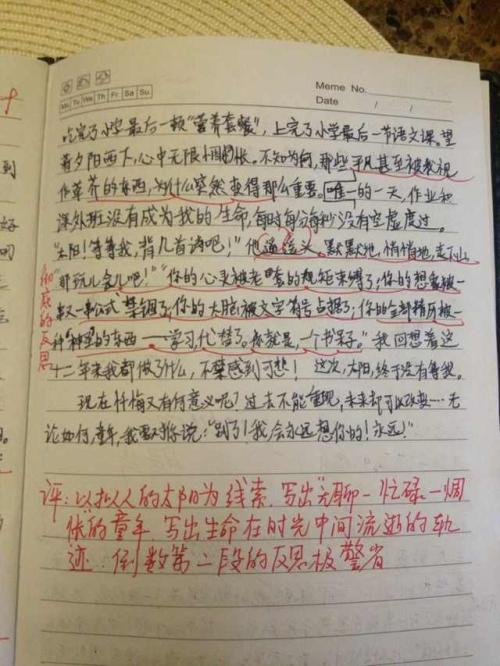 Meme No.
Date / /
Mo Tu We Th Fr Sa Su
吃完了小学最后一顿“营养套餐”，上完了小学最后一节语文课。望
着夕阳西下，心中无限惆怅。不知为何，那些平凡甚至被我视
作草芥的东西，为什么突然变得那么重要。唯一的一天，作业和
课外班没有成为我的生命，每时每分每秒没有空虚度过。
“太阳！等等我，背几首诗吧！”他摇摇头。默默地，悄悄地，走下山
“那玩儿会儿吧！”“你的心灵被老套的规矩束缚了；你的想象被一
条又一条公式禁锢了；你的大脑被文字符号占据了；你的全部精力被一
种“神圣”的东西——学习代替了。你就是，一个书呆子。”我回想着这
十二年来我都做了什么，不禁感到可悲！这次，太阳，终于没有等我。
现在忏悔又有何意义呢？过去不能重现，未来却可以改变…无
论如何，童年，我要对你说：“别了！我会永远想你的！永远！”
彻底的反思
评：以拟人的太阳为线索，写出“无聊—忙碌—惆
怅”的童年，写出生命在时光中间流逝的轨
迹。倒数第二段的反思极警省
到
好
的